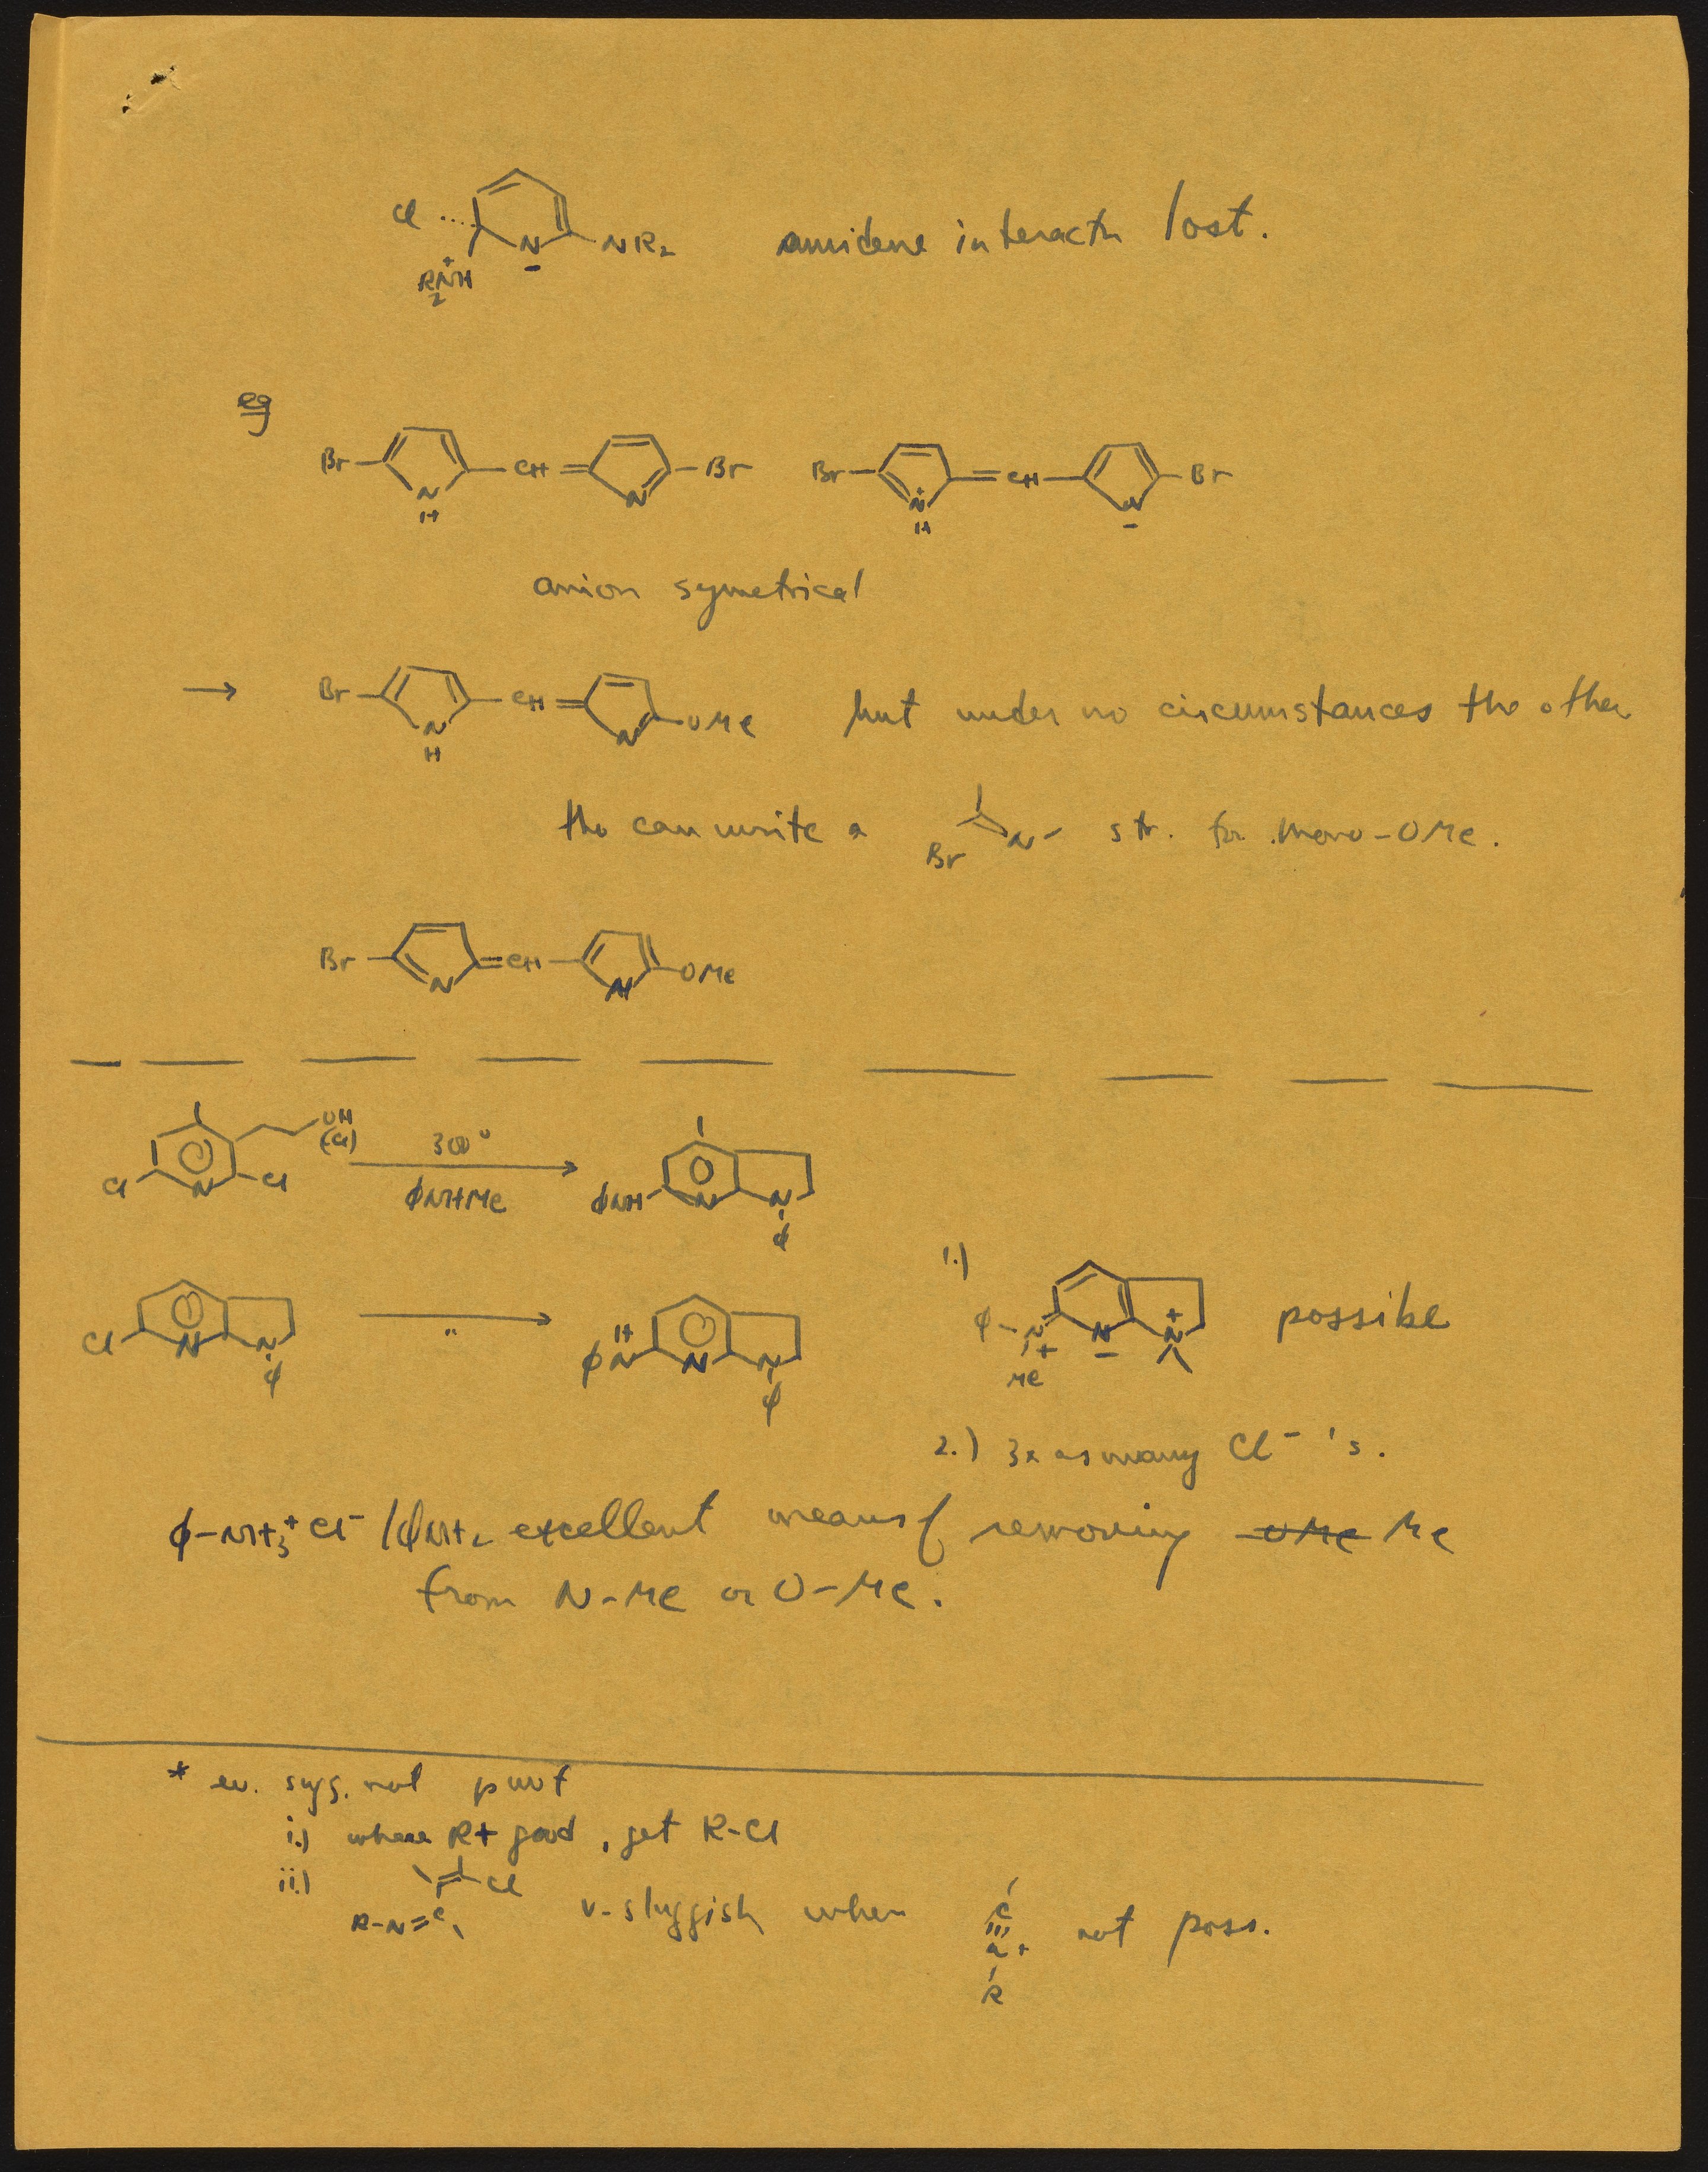 Cl
N
−
NR₂
+
R₂NH
amidene interactn lost.
eg
Br CH Br Br CH Br
N H N N+ H N −
anion symetrical
→ Br CH OMe but under no circumstances the other
N H N
tho can write a Br N− str. for mono-OMe.
Br CH OMe
N N
OH
(Cl)
Cl N Cl 300° φNHMe φNH N N φ
1.)
Cl N N φ " φN H N N φ φ-N + Me N − N + possible
2.) 3x as many Cl⁻'s.
φ-NH₃⁺ Cl⁻ / φNH₂ excellent means of removing OMe Me
from N-Me or O-Me.
* ev. sugs. not
i.) where R+ good, get R-Cl
ii.) Cl
R-N=C v-sluggish when C + R not poss.